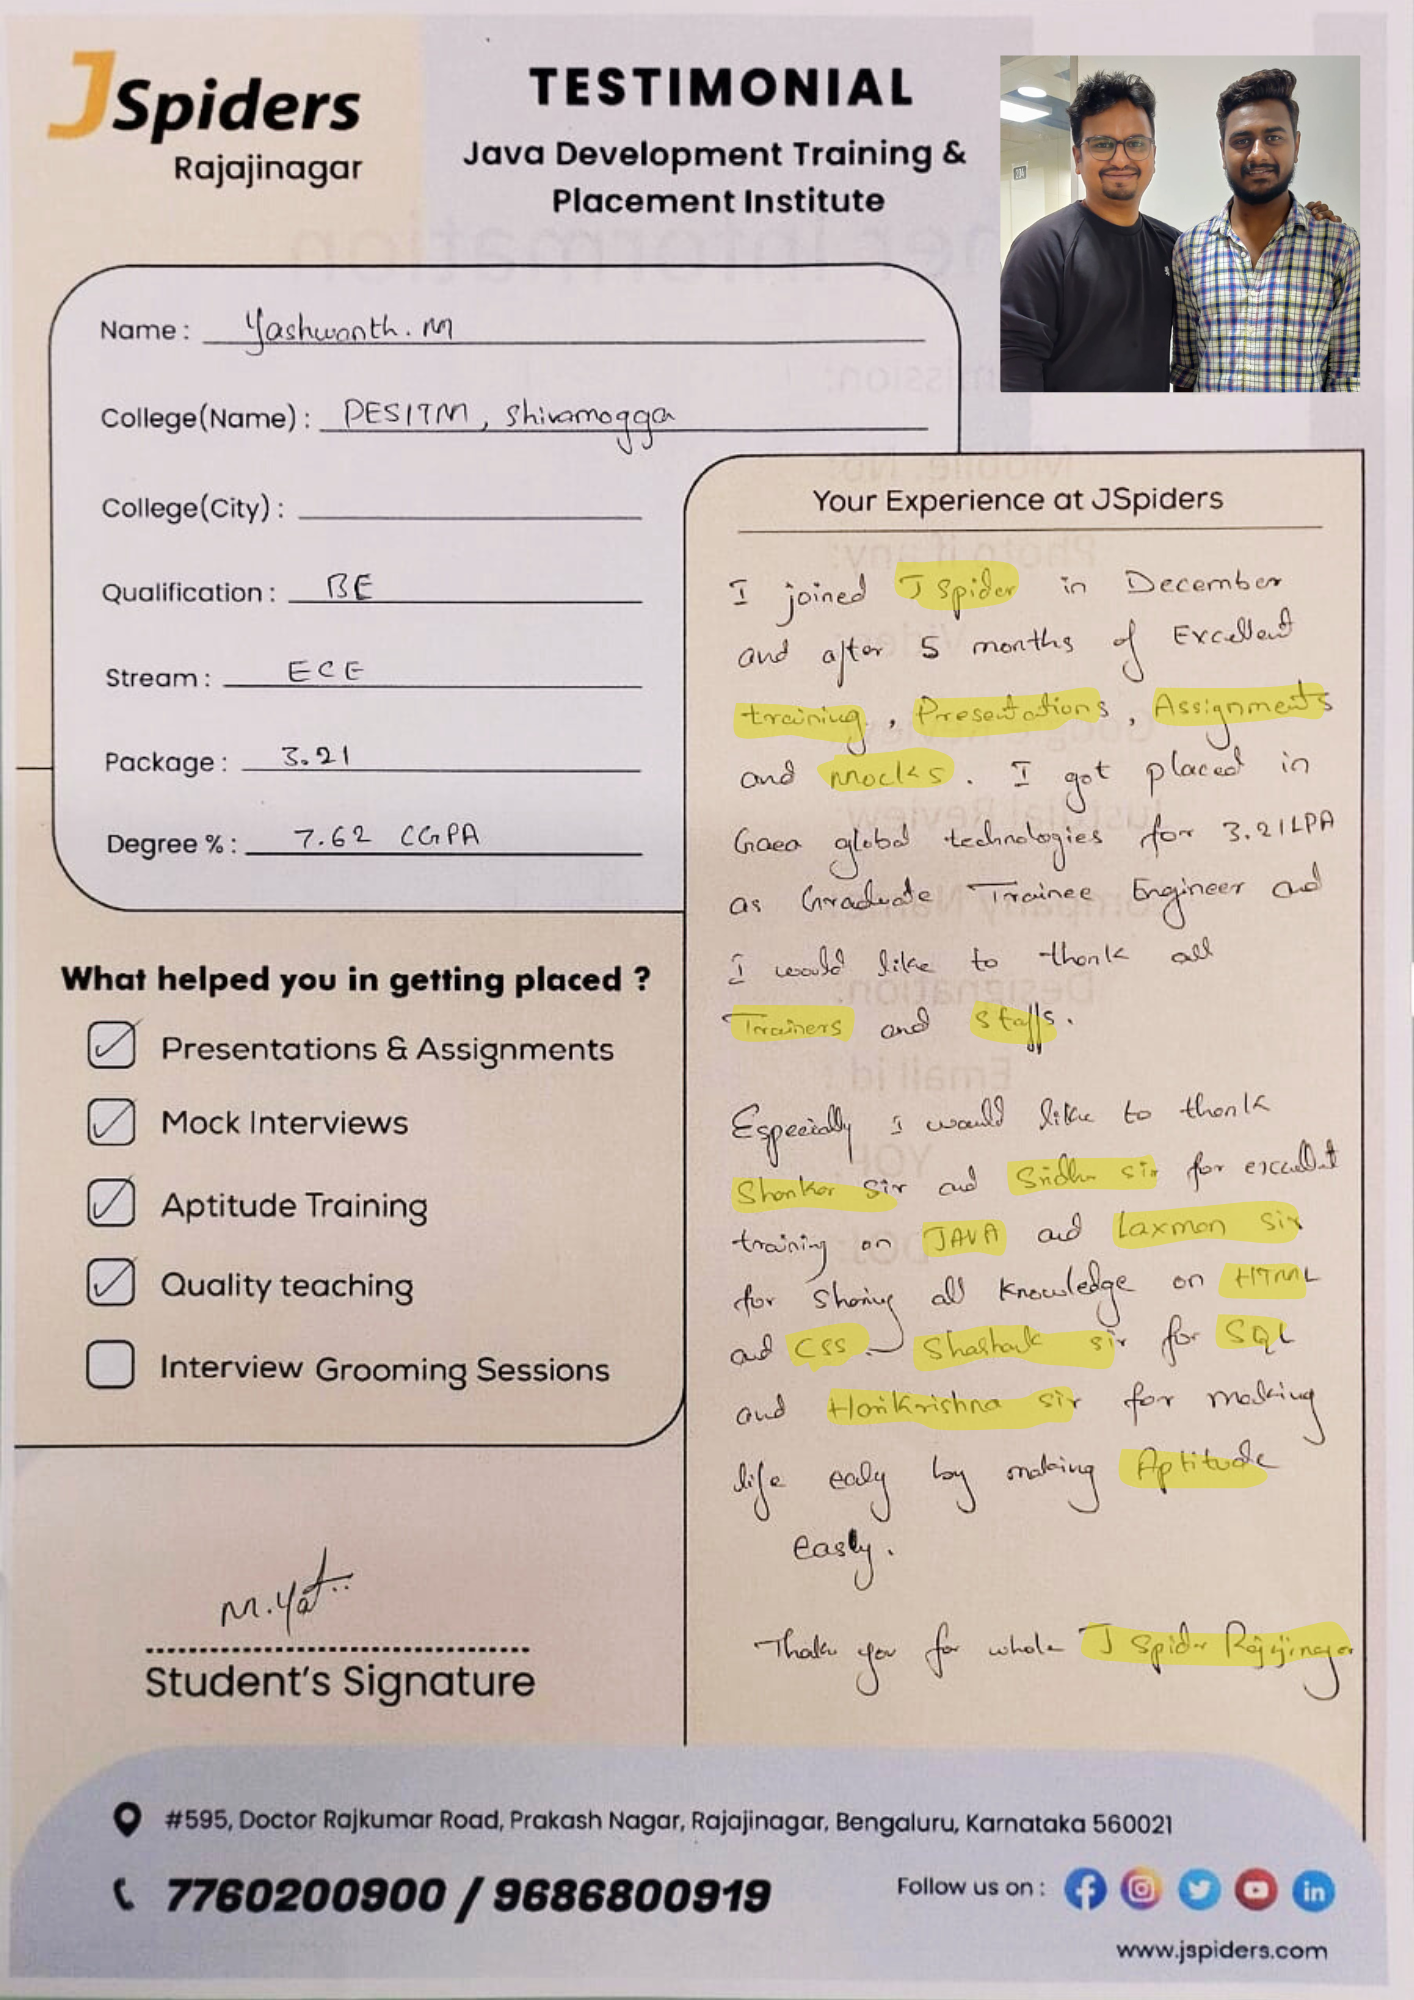 JSpiders
Rajajinagar
TESTIMONIAL
Java Development Training &
Placement Institute
Name : Yashwanth. M
College(Name) : PESITM, Shivamogga
College(City) :
Qualification : BE
Stream : ECE
Package : 3.21
Degree % : 7.62 CGPA
What helped you in getting placed ?
Presentations & Assignments
Mock Interviews
Aptitude Training
Quality teaching
Interview Grooming Sessions
Your Experience at JSpiders
I joined J Spider in December
and after 5 months of Excellent
training, Presentations, Assignments
and Mocks. I got placed in
Gaea global technologies for 3.21LPA
as Graduate Trainee Engineer and
I would like to thank all
Trainers and Staffs.
Especially I would like to thank
Shankar Sir and Sridhar sir for excellent
training on JAVA and Laxman Sir
for Sharing all Knowledge on HTML
and CSS. Shashank sir for SQL
and HariKrishna sir for making
life easy by making Aptitude
easly.
Thank you for whole J Spider Rajajinagar
M.Yat
Student's Signature
#595, Doctor Rajkumar Road, Prakash Nagar, Rajajinagar, Bengaluru, Karnataka 560021
7760200900 / 9686800919
Follow us on :
www.jspiders.com